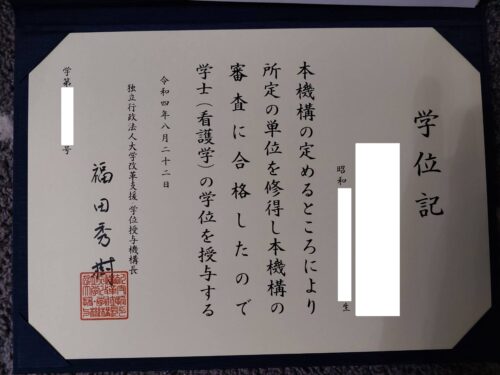 学位記
昭和
生
本機構の定めるところにより
所定の単位を修得し本機構の
審査に合格したので
学士(看護学)の学位を授与する
令和四年八月二十二日
独立行政法人大学改革支援・学位授与機構長
福田秀樹
学第
号